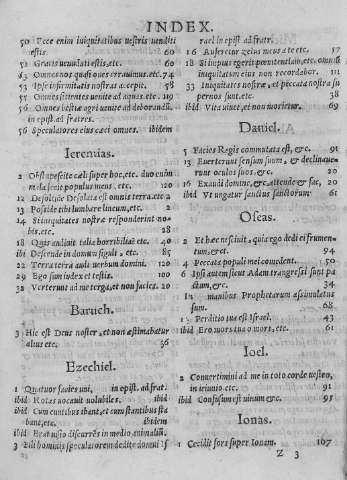 INDEX.
50 Ecce enim iniquitatibus vestris venditi
estis. 60
52 Gratis venundati estis, etc. 60
63 Omnes nos quasi oues errauimus etc. 74
53 Ipse infirmitates nostras accepit. 58
55 Omnes sitientes venite ad aquas etc. 119
56 Omnes bestiæ agri venite ad deuorandũ,
in epist. ad fratres.
56 Speculatores eius cæci omnes. ibidem
Ieremias.
2 Obstupescite cæli super hoc, etc. duo enim
mala fecit populus meus, etc. 20
12 Desolatione Desolata est omnis terra 2
13 Posside tibi lumbare lineum, etc. 2
14 Si iniquitates nostræ responderint no-
bis, etc. 28
18 Quis audiuit talia horribilia etc. 40
ibi Descende in domum figuli, etc. 85
22 Terra terra audi verbum domini. 120
29 Ego sum iudex et testis. 100
32 Verterunt ad me terga, et non facies. 20
Baruch.
3 Hic est Deus noster, et non æstimabatur
alius etc. 36
Ezechiel.
1 Quatuor facies uni, in epist. ad frat.
ibid Rotas vocauit volubiles, ibid
ibid Cum euntibus ibant, et cum stantibus sta
bant, etc. ibidem
ibid Erat visio discurrẽs in medio animaliũ.
3 Fili hominis speculatorem dedi te domui Is
rael in epist. ad fratr.
16 Auferetur zelus meus a te etc. 77
18 Si impius egerit pœnitentiam, etc. omniũ
iniquitatum eius non recordabor. 111
33 Iniquitates nostræ, et peccata nostra su
per nos sunt. etc. 38
ibid Vita viuet, et non morietur. 69
Daniel.
5 Facies Regis commutata est, &c. 91
13 Euerterunt sensum suum, & declinaue-
runt oculos suos, &c. 20
16 Exaudi domine, &c. attende & fac, 20
ibid Vt ungatur sanctus sanctorum. 61
Oseas.
2 Et hæc nesciuit, quia ego dedi ei frumen-
tum, &c. 94
4 Peccata populi mei comedent. 50
6 Ipsi autem sicut Adam transgressi sunt pa
ctum, &c. 34
12 In manibus Prophetarum assimulatus
sum. 68
13 Perditio tua est Israel. 43
ibid Ero mors tua o mors, etc. 61
Ioel.
2 Conuertimini ad me in toto corde vestro,
in ieiunio etc. 91
ibid Confusum est vinum &c. 95
Ionas.
1 Cecidit sors super Ionam. 107
Z 3